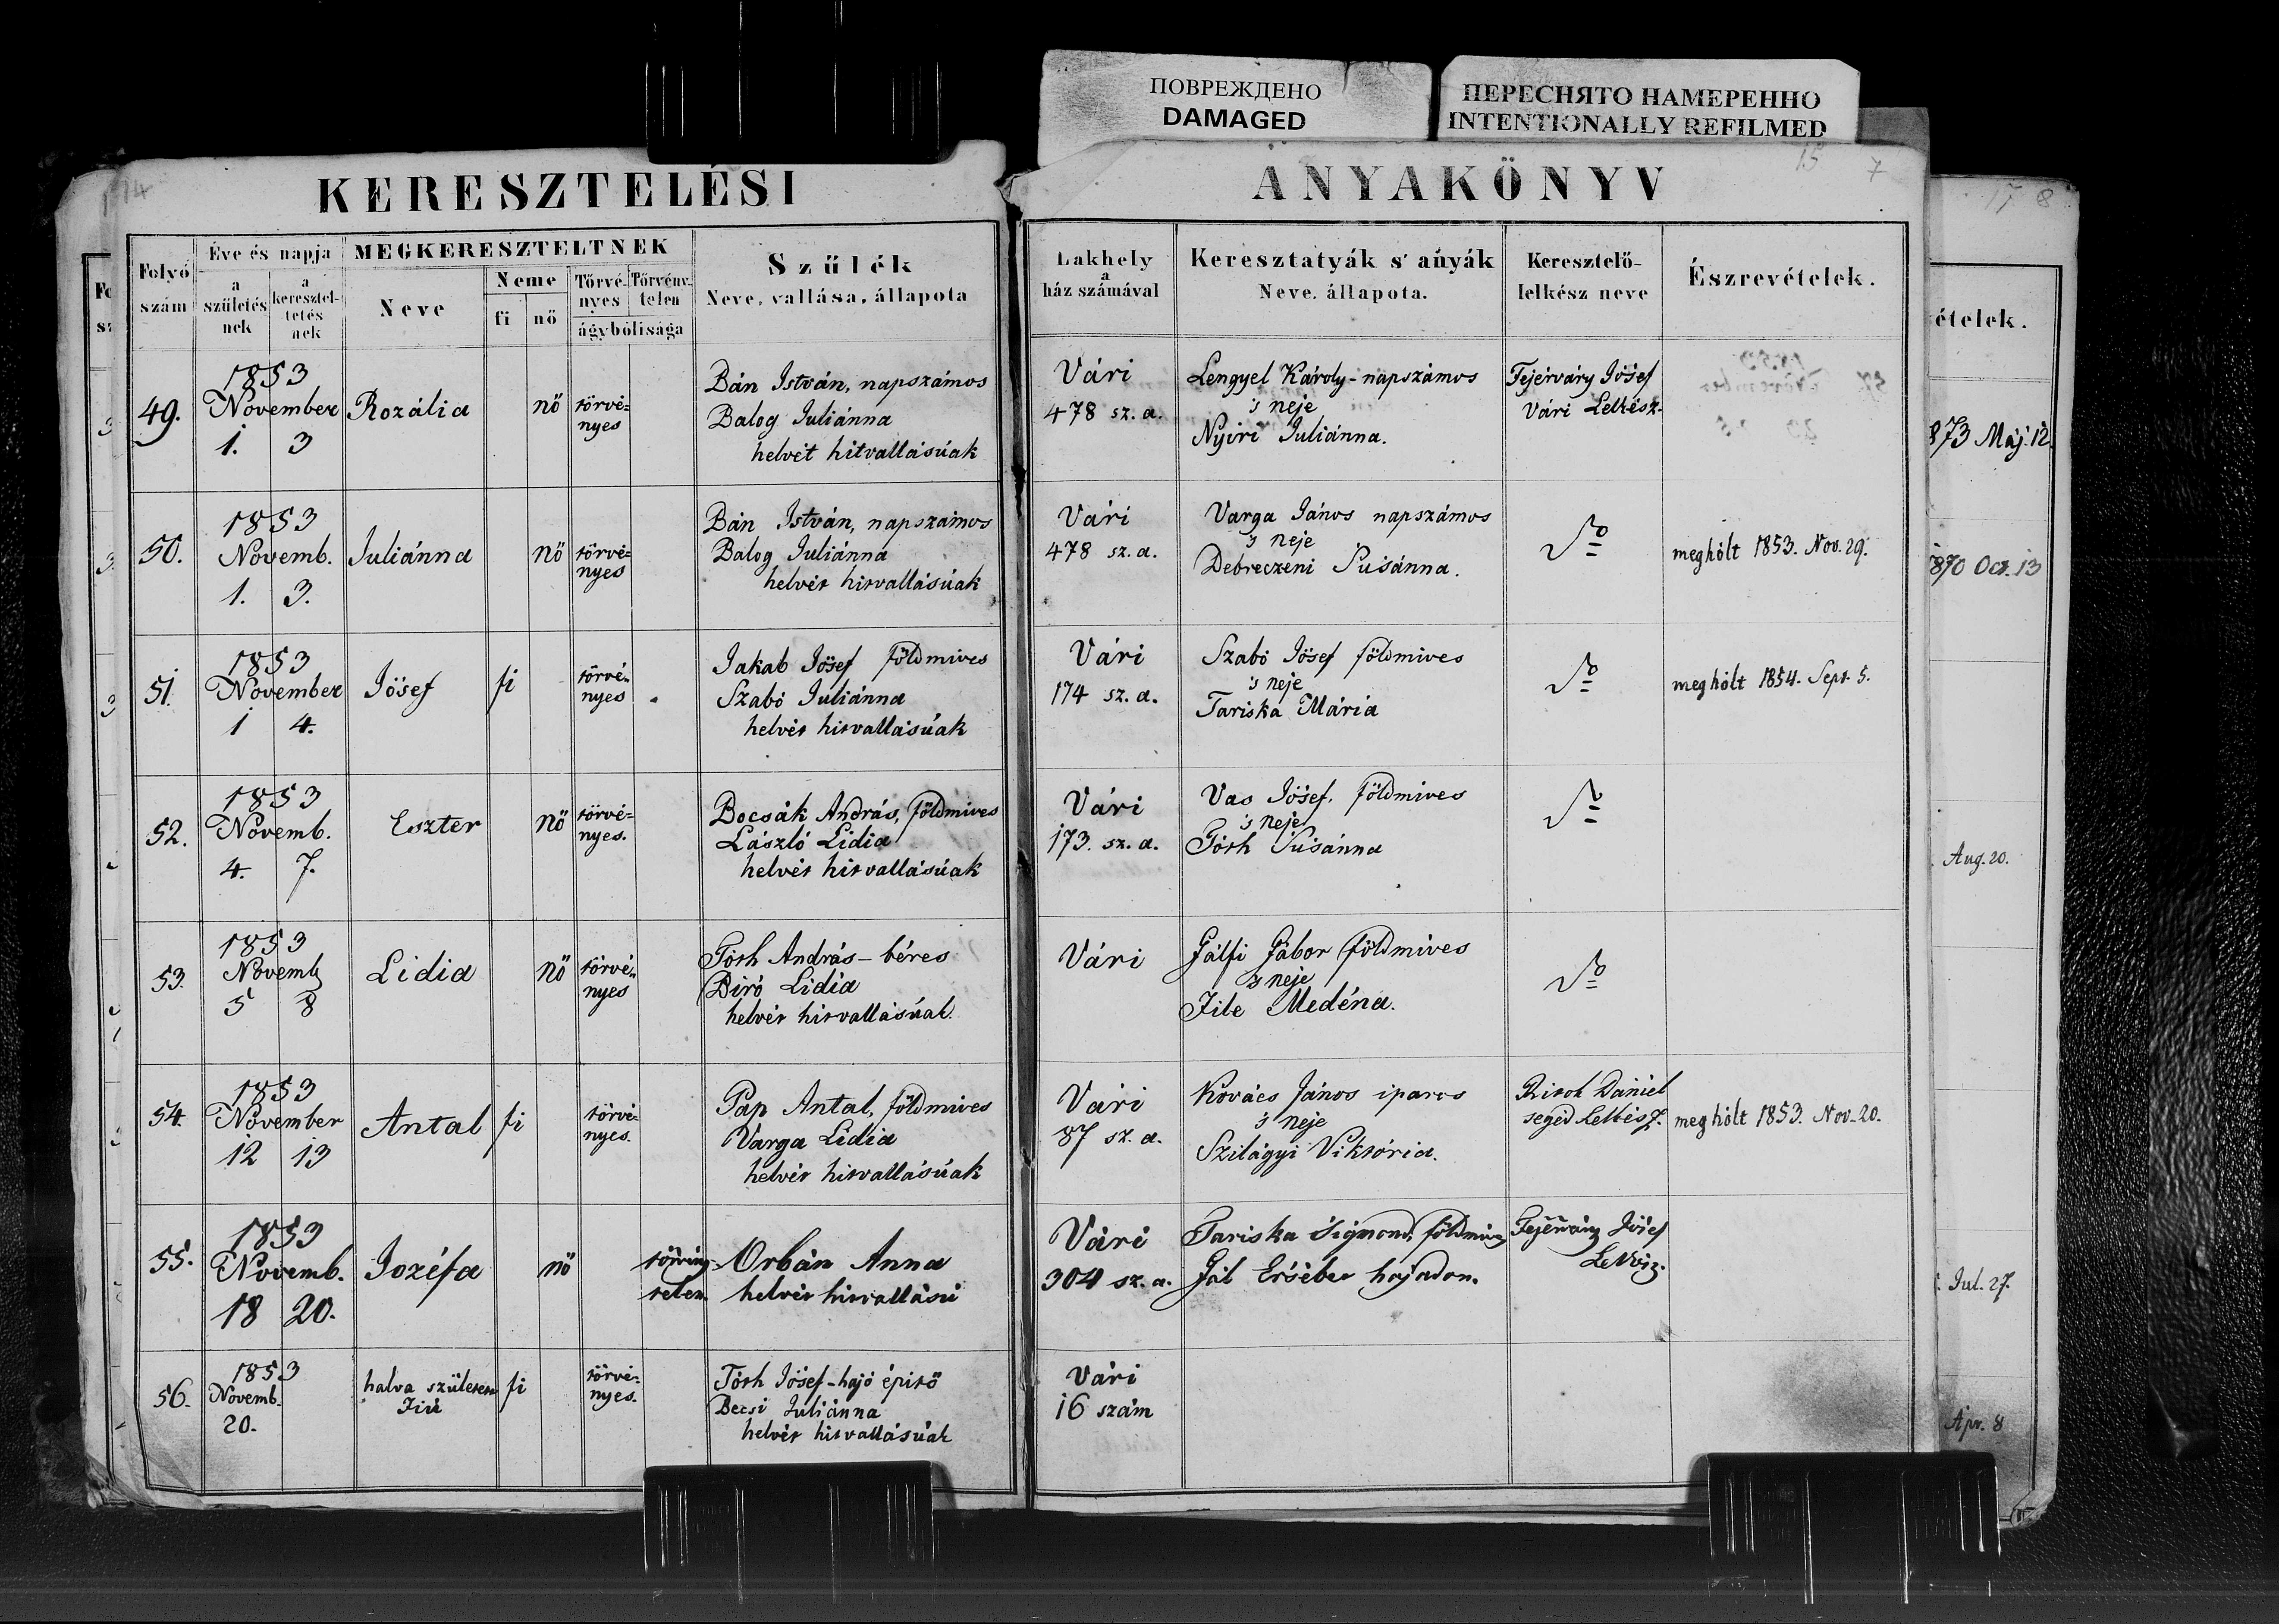 ПОВРЕЖДЕНО
DAMAGED
ПЕРЕСНЯТО НАМЕРЕННО
INTENTIONALLY REFILMED
14
15
7
17 8
KERESZTELÉSI ANYAKÖNYV
Folyó szám
Éve és napja
a születésnek
a keresztel-
tetés
nek
MEGKERESZTELTNEK
Neve
Neme
fi
nő
Törvé-
nyes
Törvény-
telen
ágybólisága
Szűlék
Neve, vallása, állapota
Lakhely
a
ház számával
Keresztatyák s' anyák
Neve, állapota.
Keresztelő-
lelkész neve
Észrevételek.
ételek.
49.
1853
November
1. 3
Rozália
nő
törvé-
nyes
Bán István, napszámos
Balog Juliánna
helvét hitvallásúak
Vári
478 sz. a.
Lengyel Károly - napszámos
's neje
Nyiri Juliánna.
Fejérváry Jósef
Vári Lelkész.
873 Máj. 12.
50.
1853
Novemb.
1. 3.
Juliánna
nő
törvé-
nyes
Bán István, napszámos
Balog Juliánna
helvét hitvallásúak
Vári
478 sz. a.
Varga János napszámos
's neje
Debreczeni Susánna.
meghólt 1853. Nov. 29.
870 Oct. 13
51.
1853
November
1 4.
Jósef
fi
törvé-
nyes
Jakab Jósef földmives
Szabó Juliánna
helvét hitvallásúak
Vári
174 sz. a.
Szabó Jósef földmives
's neje
Tariska Mária
meghólt 1854. Sept 5.
52.
1853
Novemb.
4. 7.
Eszter
nő
törvé-
nyes.
Bocsák András, földmives
László Lidia
helvét hitvallásúak
Vári
173. sz. a.
Vas Jósef, földmives
's neje
Tóth Susánna
Aug. 20.
53.
1853
Novemb
5 8
Lidia
nő
törvé-
nyes
Tóth András - béres
Biró Lidia
helvét hitvallásúak.
Vári
Gálfi Gábor földmives
's neje
File Medéna.
54.
1853
November
12 13
Antal
fi
törvé-
nyes.
Pap Antal, földmives
Varga Lidia
helvét hitvallásúak
Vári
87 sz. a.
Kovács János iparos
's neje
Szilágyi Viktória.
Ritok Dániel
segéd Lelkész.
meghólt 1853. Nov. 20.
55.
1853
Novemb.
18 20.
Jozéfa
nő
törvény-
telen.
Orbán Anna
helvét hitvallású
Vári
304 sz. a.
Tariska Sigmond, földmives
Gál Ersébet hajadon.
Fejérváry Jósef
Jul. 27.
56.
1853
Novemb.
20.
halva született
Fiú
fi
törvé-
nyes.
Tóth Jósef - hajó épitő
Becsi Juliánna
helvét hitvallásúak
Vári
16 szám
Apr. 8